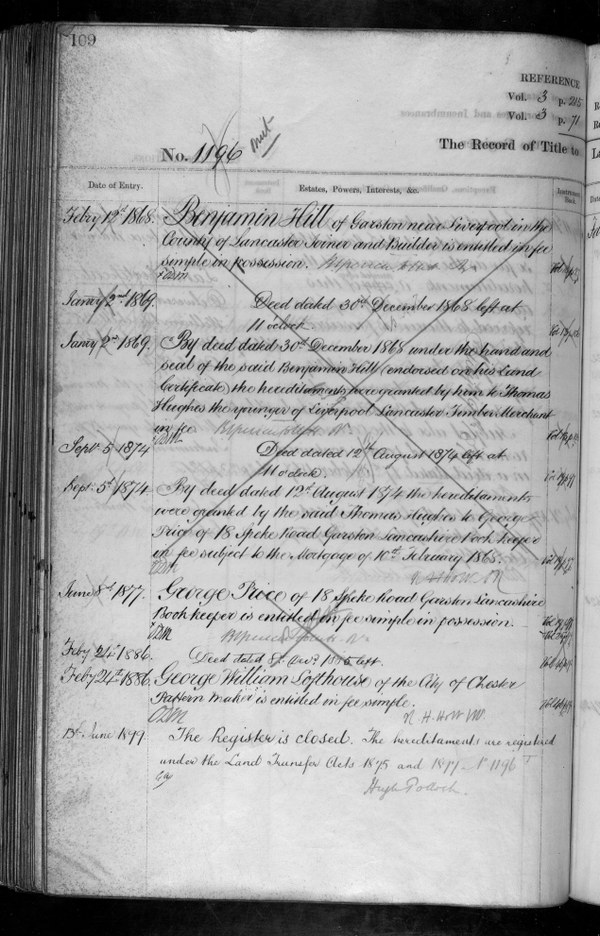 109
REFERENCE
Vol. 3 p. 215
Vol. 3 p. 71
No. 1196
The Record of Title to
Date of Entry.
Estates, Powers, Interests, &c.
Febry 12th 1868.
Benjamin Hill of Garston near Liverpool in the
County of Lancaster Joiner and Builder is entitled in fee
simple in possession.
Janry 2nd 1869.
Deed dated 30th December 1868 left at
11 o'clock.
Janry 2nd 1869.
By deed dated 30th December 1868 under the hand and
seal of the said Benjamin Hill (endorsed on his Land
Certificate) the hereditaments were granted by him to Thomas
Hughes the younger of Liverpool Lancaster Timber Merchant
in fee
Septr. 5 1874
Deed dated 12th August 1874 left at
11 o'clock.
Sept. 5th 1874
By deed dated 12th August 1874 the hereditaments
were granted by the said Thomas Hughes to George
Price of 18 Speke Road Garston Lancashire Book keeper
in fee subject to the Mortgage of 10th February 1868.
June 8th 1877.
George Price of 18 Speke Road Garston Lancashire
Book keeper is entitled in fee simple in possession.
Feby 24th 1886.
Deed dated 8th Decr. left.
Feby 24th 1886.
George William Lofthouse of the City of Chester
Pattern Maker is entitled in fee simple.
1st June 1899
The Register is closed. The hereditaments are registered
under the Land Transfer Acts 1875 and 1897. No 1196
Hugh Pollock.